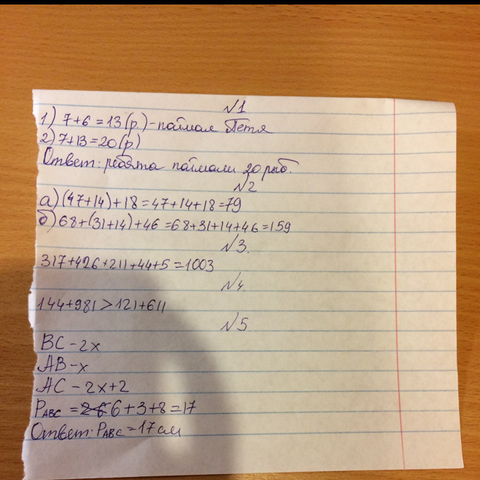 №1
1) 7+6=13(р.)-поймал Петя
2) 7+13=20(р)
Ответ: ребята поймали 20 рыб.
№2
а) (47+14)+18=47+14+18=79
б) 68+(31+14)+46=68+31+14+46=159
№3.
317+426+211+44+5=1003
№4
144+981>121+611
№5
BC-2x
AB-x
AC-2x+2
PABC = 6+3+8=17
Ответ: PABC=17см